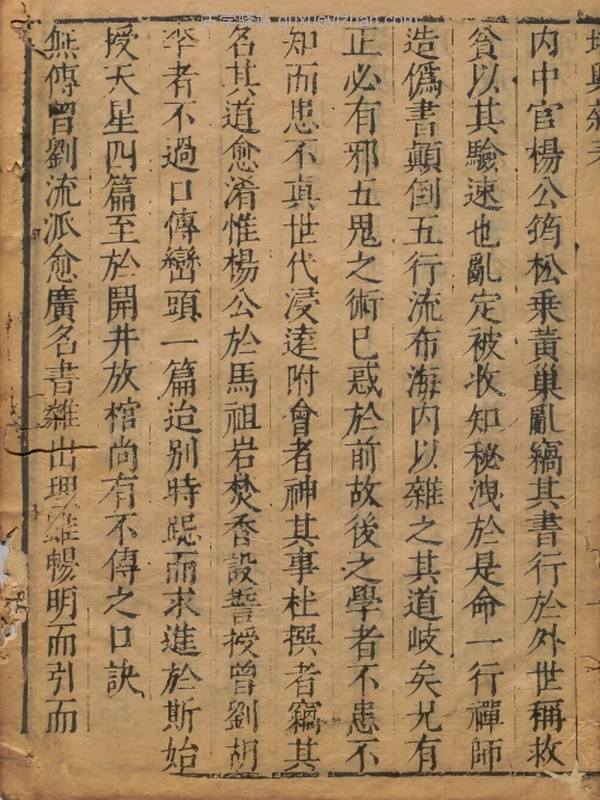 內中官楊公筠松乘黃巢亂竊其書行於外世稱救
貧以其驗速也亂定被收知秘洩於是命一行禪師
造偽書顛倒五行流布海內以雜之其道岐矣凢有
正必有邪五鬼之術巳惑於前故後之學者不患不
知而患不真世代浸遠附會者神其事杜撰者竊其
名其道愈淆惟楊公於馬祖岩焚香設誓授曾劉胡
李者不過口傳巒頭一篇迨別時跽而求進於斯始
授天星四篇至於開井放棺尚有不傳之口訣
無傳曾劉流派愈廣名書雜出理雖暢明而引而